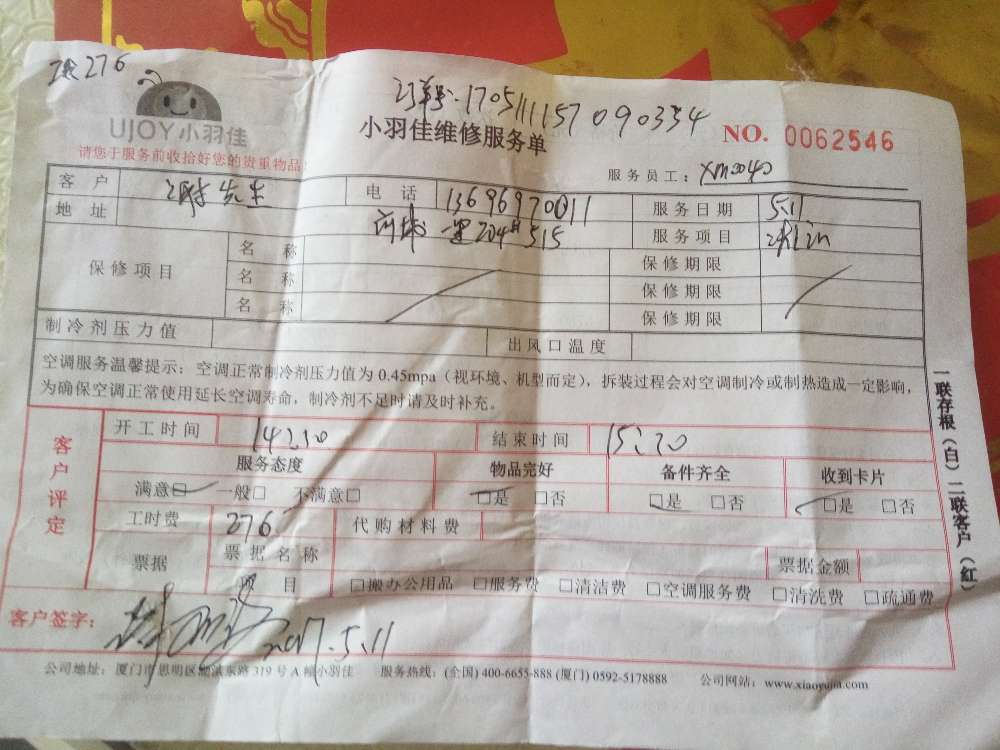 276
订单号.170511157090354
UJOY小羽佳
小羽佳维修服务单
NO. 0062546
请您于服务前收拾好您的贵重物品!
服务员工: XM0040
客户 先生 电话 13696970011 服务日期 5.11
地址 一里204# 515 服务项目
保修项目 名称 保修期限
名称 保修期限
名称 保修期限
制冷剂压力值 出风口温度
空调服务温馨提示: 空调正常制冷剂压力值为0.45mpa(视环境、机型而定), 拆装过程会对空调制冷或制热造成一定影响,
为确保空调正常使用延长空调寿命, 制冷剂不足时请及时补充。
客户评定
开工时间 14:50 结束时间 15:20
服务态度 物品完好 备件齐全 收到卡片
满意□ 一般□ 不满意□ □是 □否 □是 □否 □是 □否
工时费 276 代购材料费
票据 票据名称 票据金额
项目 □搬办公用品 □服务费 □清洁费 □空调服务费 □清洗费 □疏通费
客户签字: 2017.5.11
一联存根(白) 二联客户(红)
公司地址: 厦门市思明区湖滨东路319号A幢小羽佳 服务热线: (全国) 400-6655-888 (厦门) 0592-5178888 公司网站: www.xiaoyujia.com